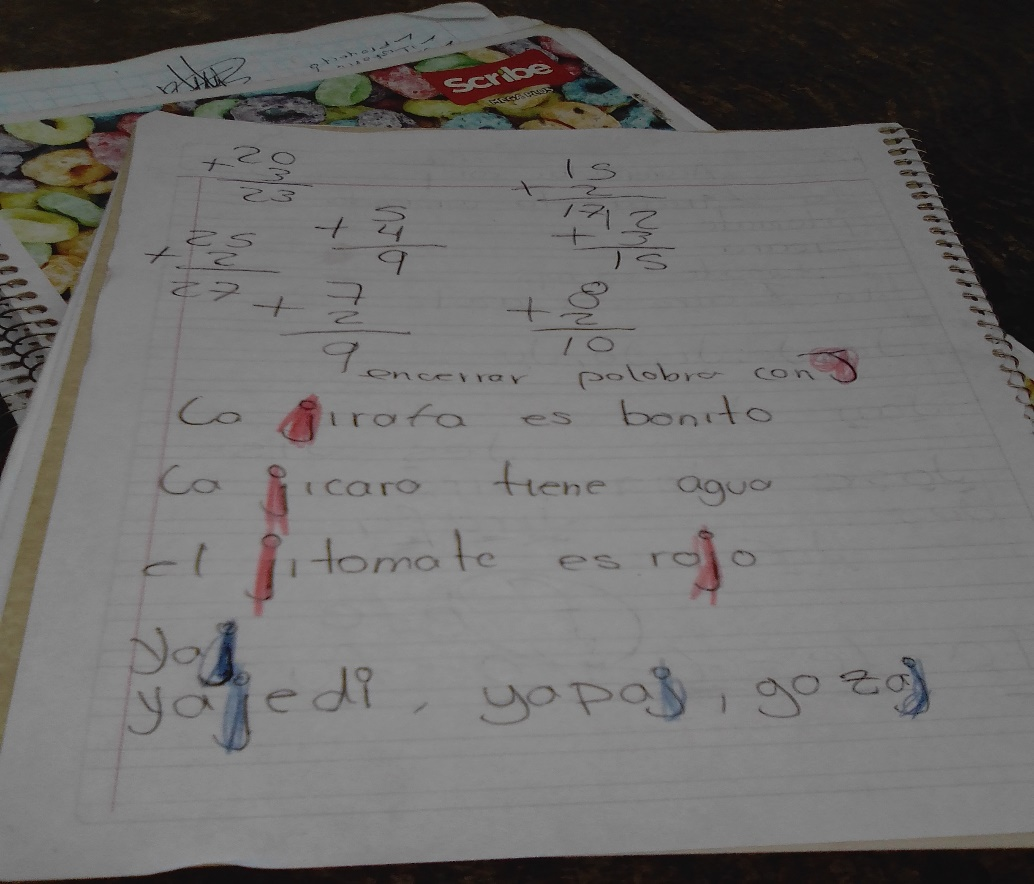 Scribe
MEGA PLUS
+ 20
3
23
+ 15
2
17
+ 5
4
9
+ 12
3
15
+ 25
2
27
+ 7
2
9
+ 8
2
10
encerrar palabra con J
La jirafa es bonita
La jicara tiene agua
el jitomate es rojo
yaj
yajedi, yapaj, gozaj